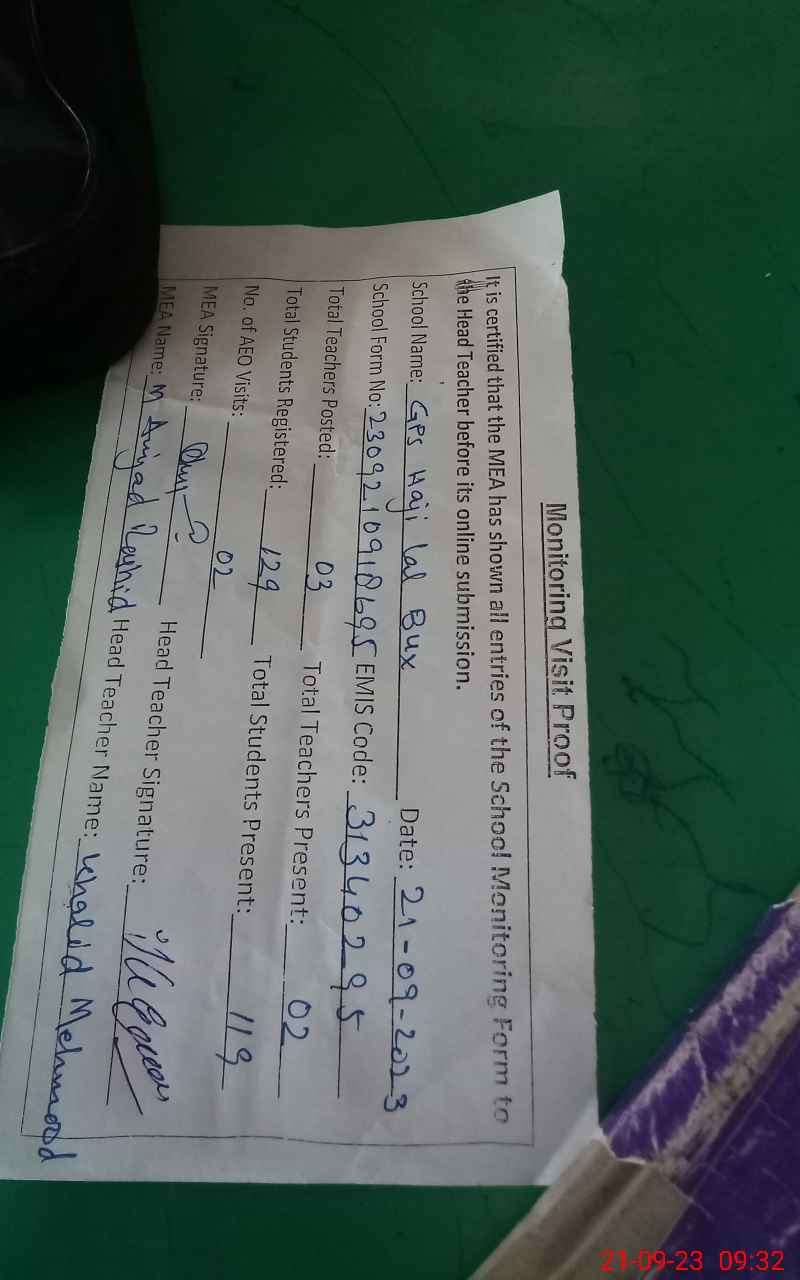 Monitoring Visit Proof
It is certified that the MEA has shown all entries of the School Monitoring Form to
the Head Teacher before its online submission.
School Name: GPS Haji Lal Bux Date: 21-09-2023
School Form No: EMIS Code: 31340295
Total Teachers Posted: 03 Total Teachers Present: 02
Total Students Registered: 129 Total Students Present: 119
No. of AEO Visits: 02
MEA Signature: Head Teacher Signature:
MEA Name: M Amjad Rashid Head Teacher Name: Khalid Mehmood
21-09-23 09:32